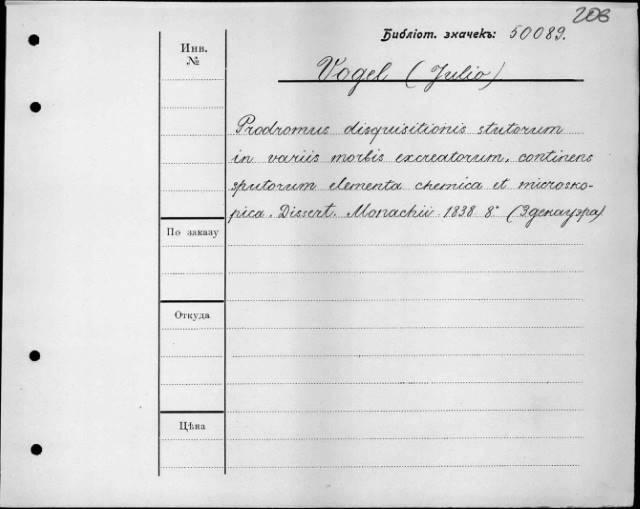 206
Библіот. значекъ: 50089.
Инв.
№
Vogel (Julio)
Prodromus disquisitionis stutorum
in variis morbis excreatorum, continens
sputorum elementa chemica et microsko-
pica. Dissert. Monachii 1838 8° (Зденауэра)
По заказу
Откуда
Цѣна